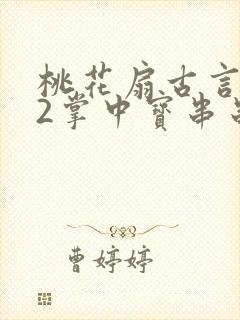 桃花扇古言
2掌中寶串
曹婷婷